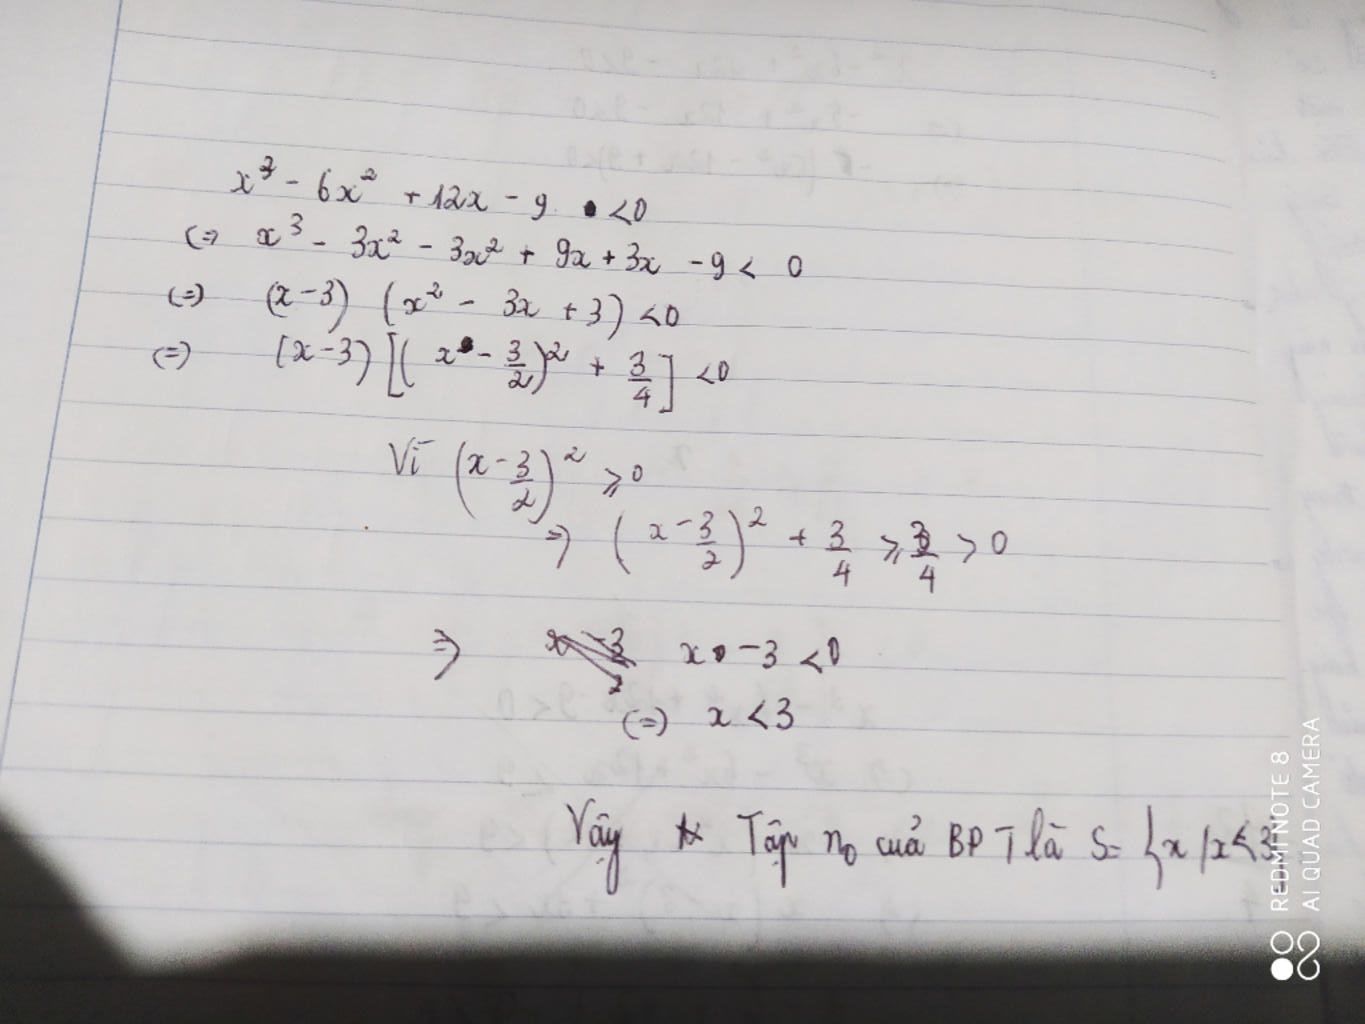 x³ - 6x² + 12x - 9 < 0
(=) x³ - 3x² - 3x² + 9x + 3x - 9 < 0
(=) (x - 3) (x² - 3x + 3) < 0
(=) (x - 3) [(x - 3/2)² + 3/4] < 0
Vì (x - 3/2)² ≥ 0
=) (x - 3/2)² + 3/4 ≥ 3/4 > 0
=) x - 3 < 0
(=) x < 3
Vậy Tập n₀ của BPT là S = {x / x < 3
REDMI NOTE 8
AI QUAD CAMERA